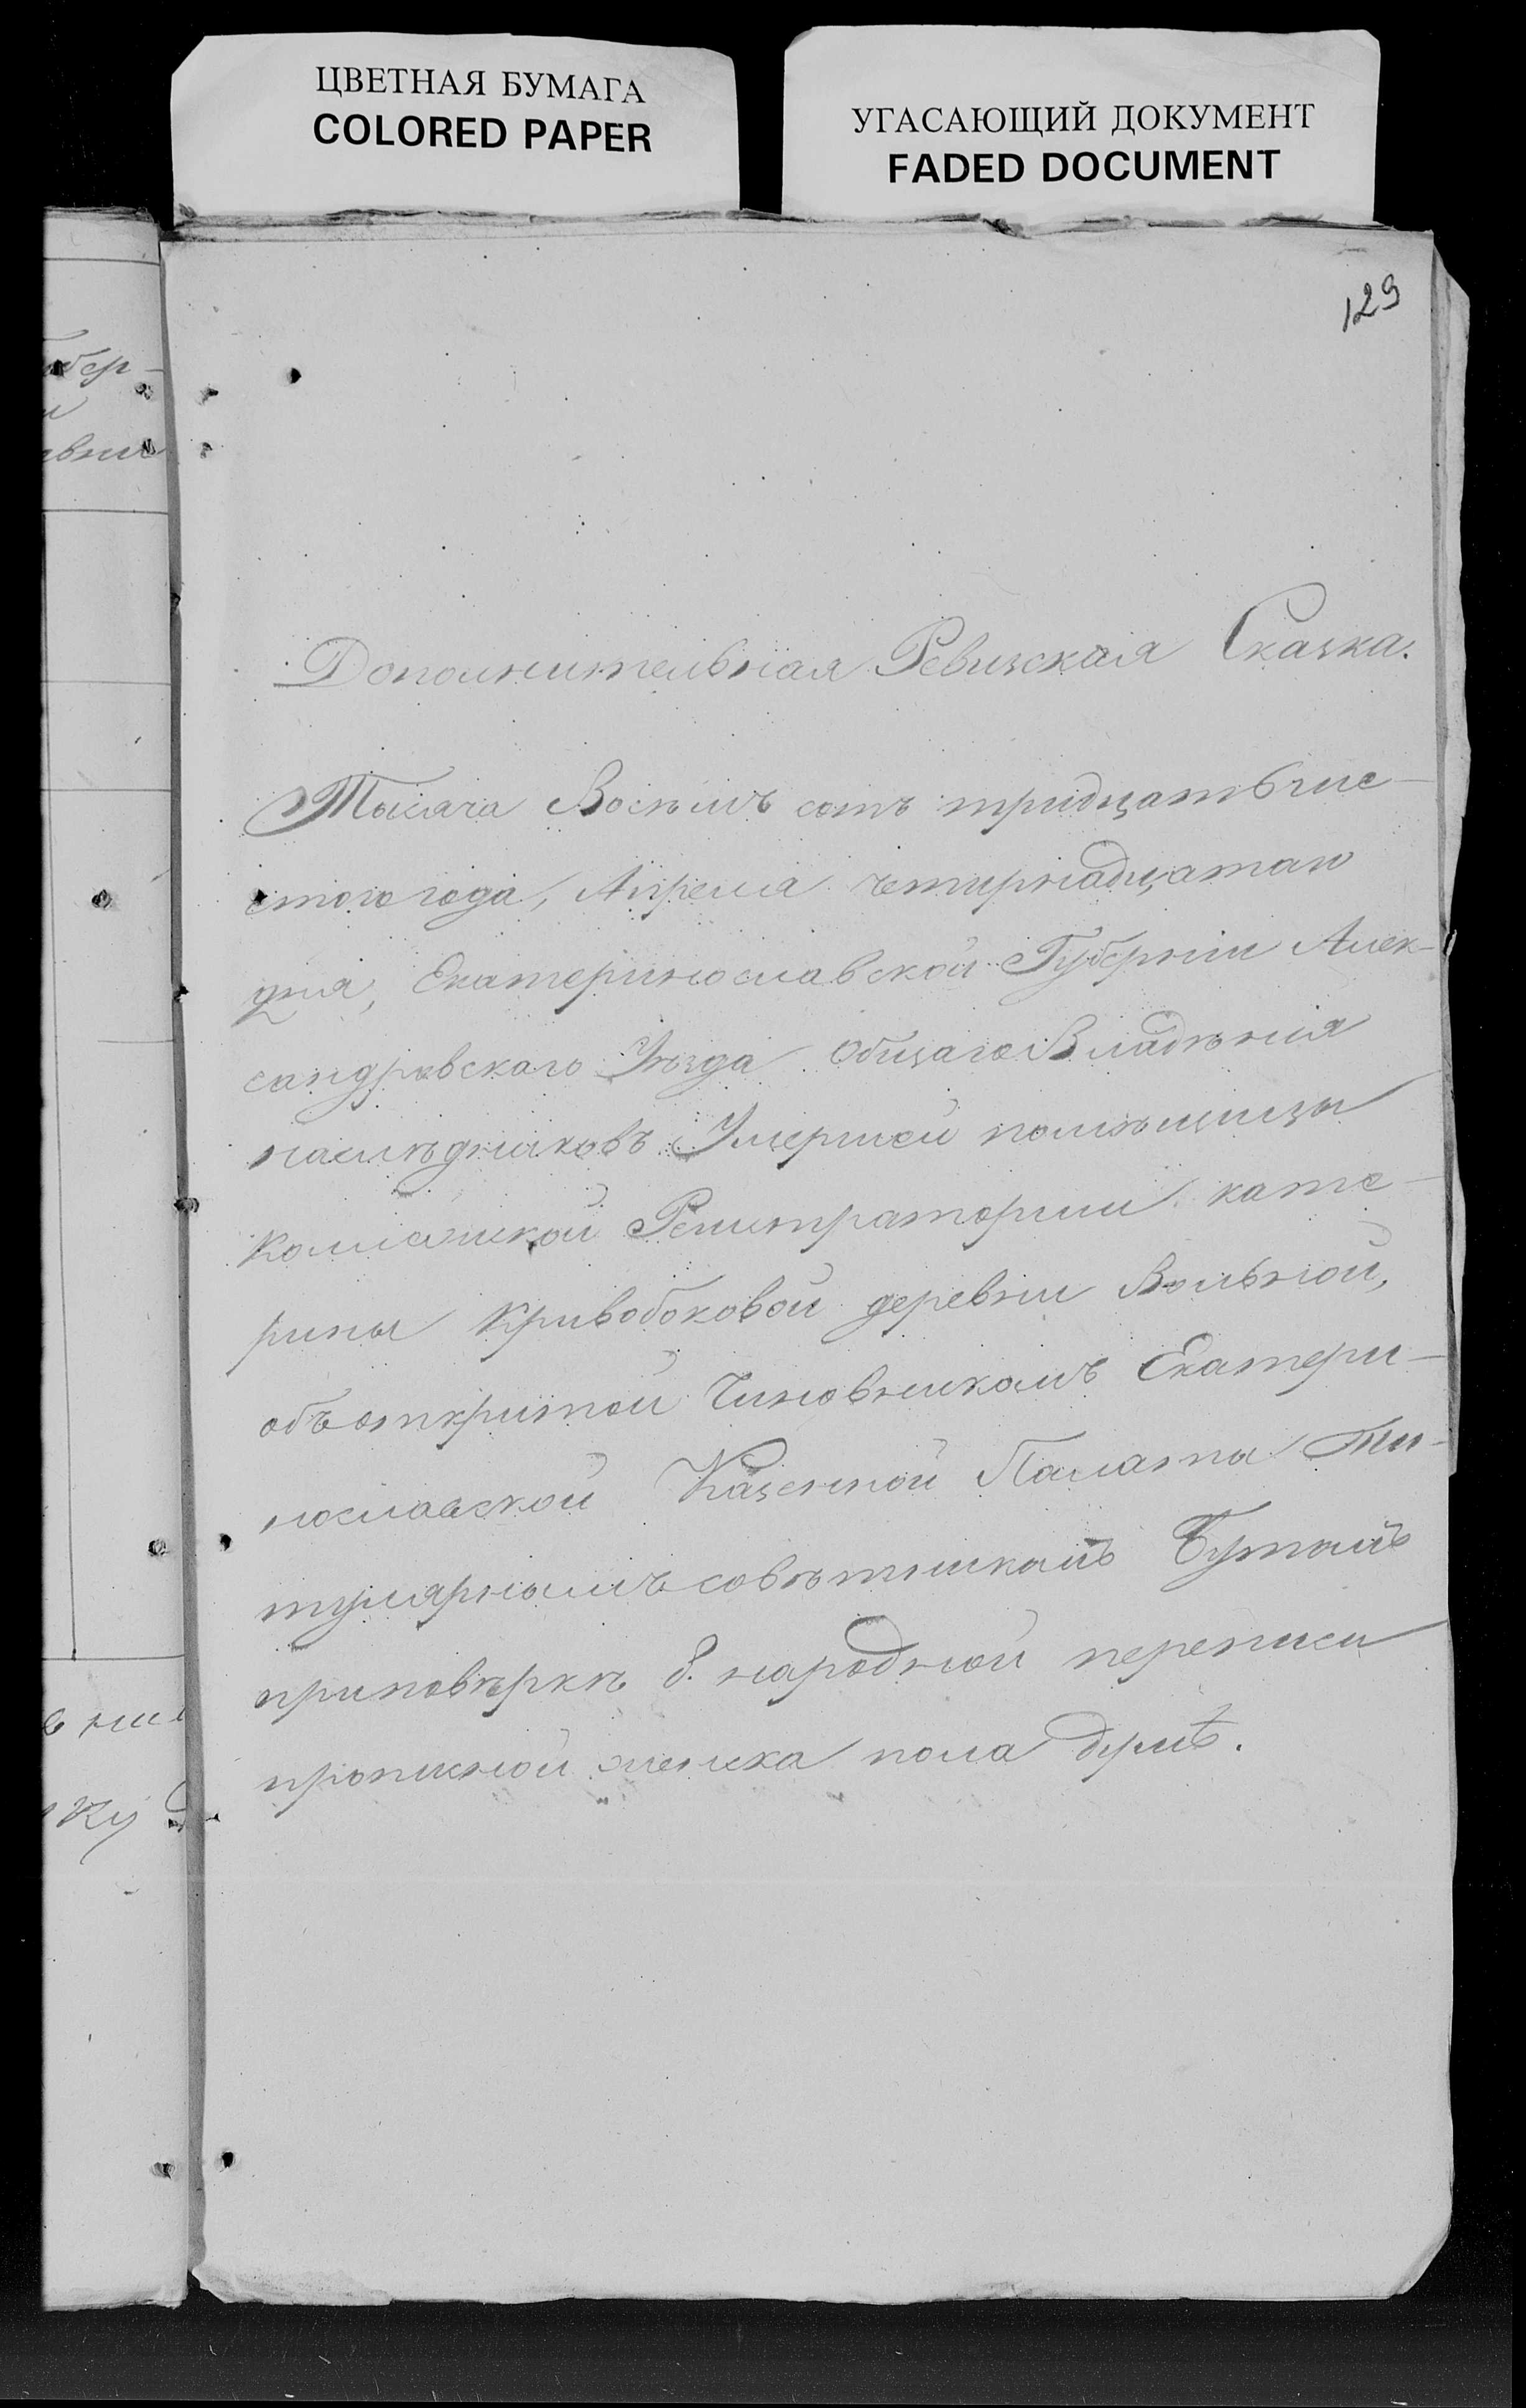 ЦВЕТНАЯ БУМАГА
COLORED PAPER
УГАСАЮЩИЙ ДОКУМЕНТ
FADED DOCUMENT
129
Дополнительная Ревизская Сказка.
Тысяча Восемь сотъ тридцать шес-
стого года, Апреля четирнадцатаго
дня, Екатеринославской Губернии Алек-
сандровскаго Уезда Общаго Владѣния
наслѣдниковъ Умершей помѣщицы
Колležской Регистраторши кате-
рины Кривобоковой деревни Вольной,
объ открытой Чиновникомъ Екатери-
нославской Казенной Палаты Ти-
тулярнымъ совѣтникомъ
приповѣркѣ 8. народной переписи
прописной женска пола души.